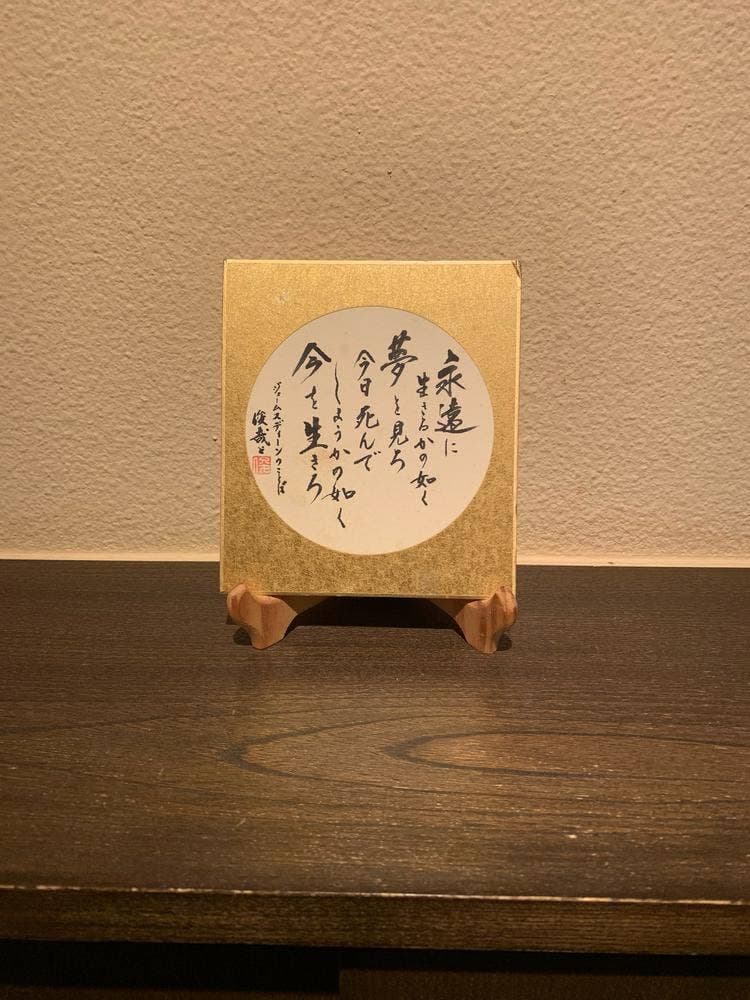 永遠に
生きるかの如く
夢を見ろ
今日死んで
しまうかの如く
今を生きろ
ジェームスディーンのことば
俊哉